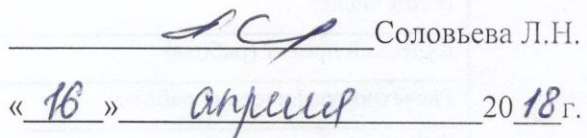 Соловьева Л.Н.
« 16 » апреля 20 18 г.